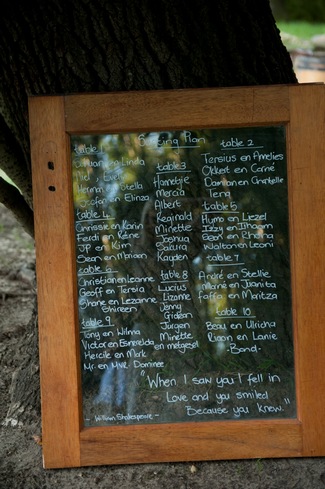 Seating Plan
table 1
en Linda
Herman en Stella
Stefan en Elinza
table 4
Chrissie en Karin
Ferdi en Rene
JP en Kim
Sean en Mariaan
table 6
Christian en Leanne
Geoff en Tersia
Shane en Lezanne
Shireen
table 9
Tony en Wilma
Victor en Esmerelda
Hercile en Mark
Mr. en Mvr. Dominee
table 3
Hannetjie
Marcia
Albert
Reginald
Minette
Joshua
Sakura
Kayden
table 8
Lucius
Lizame
Jenny
Gideon
Jurgen
Minette
en metgesel
table 2
Tersius en Amelies
Okkert en Carne
Damian en Chantelle
Teng
table 5
Humo en Liezel
Izzy en Ilhaam
Sean en Rhona
Walton en Leoni
table 7
André en Stellie
Manie en Juanita
Faffa en Maritza
table 10
Beau en Ulricha
Ruan en Lanie
- Band -
"When I saw you I fell in
Love and you smiled
Because you knew."
- William Shakespeare -